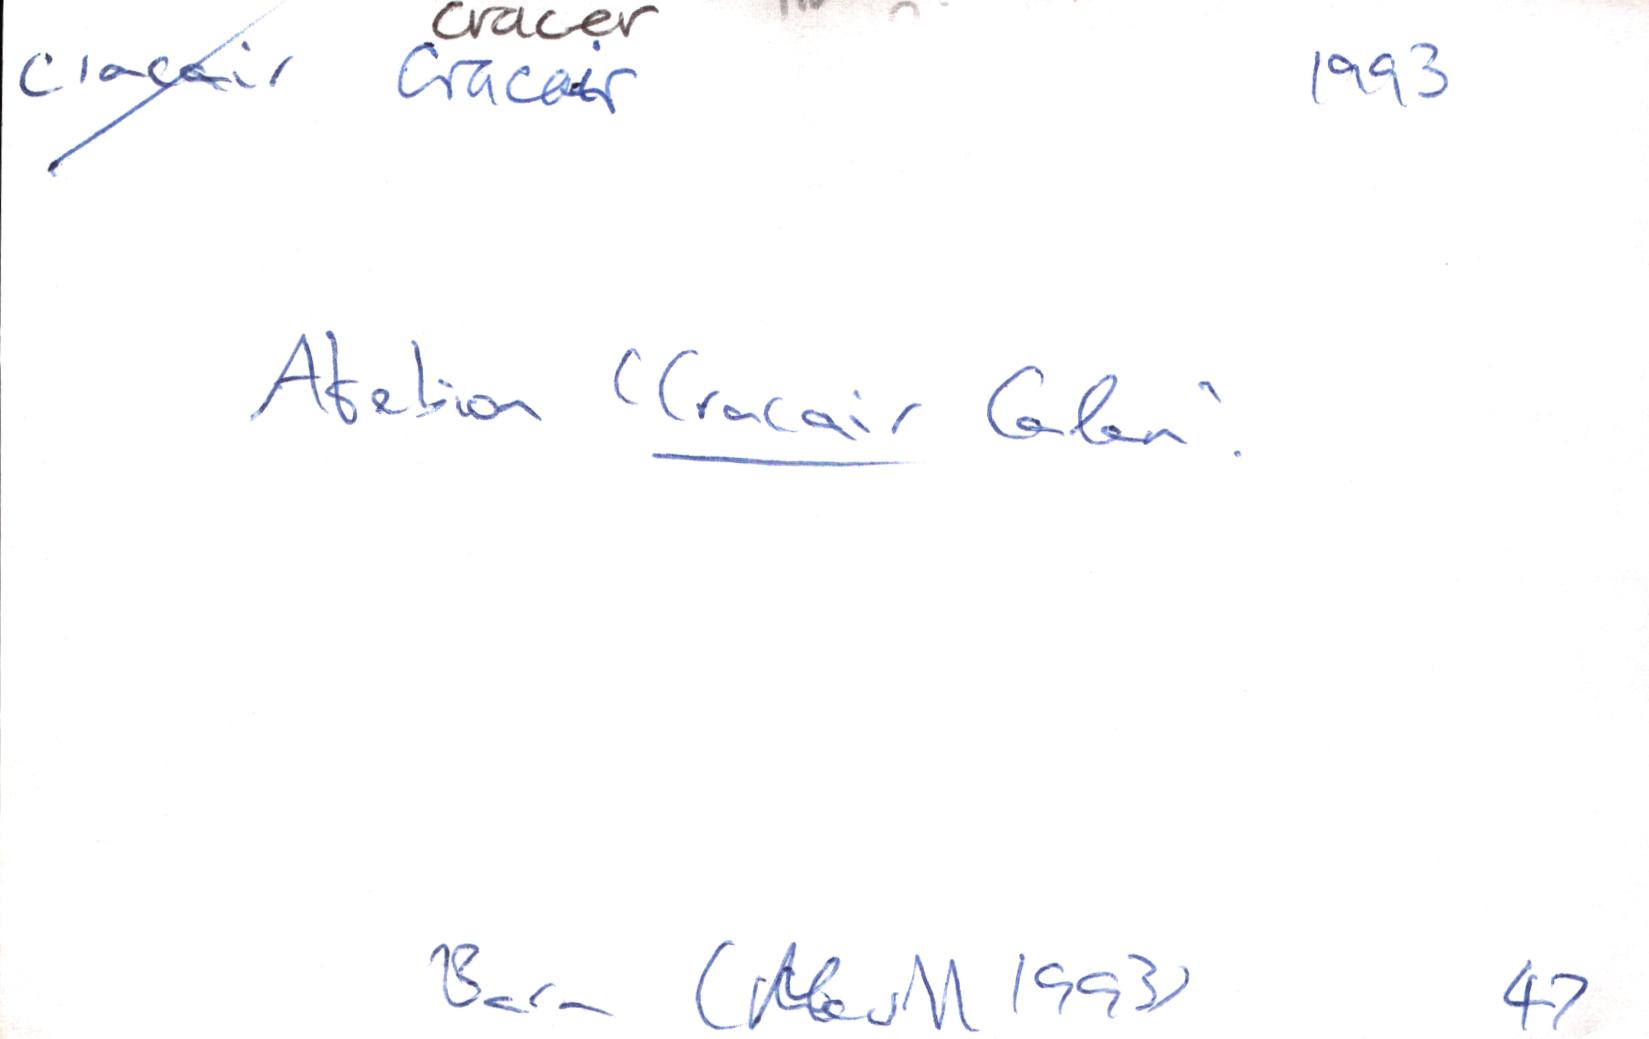 cracer
Clacair Cracair 1993
Atebion 'Cracair Calan'.
Barn ( 1993) 47